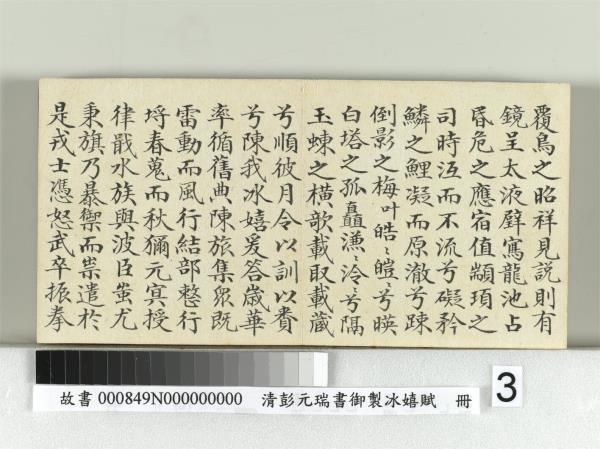 覆鳥之昭祥見説則有
鏡呈太液壁寫龍池占
昬危之應宿值顓頊之
司時沍而不流兮礙矜
鱗之鯉凝而原澈兮踈
倒影之梅叶皓〻皚〻兮暎
白塔之孤矗溓〻泠〻兮隔
玉蝀之橫欹載取載蔵
兮順彼月令以訓以賚
兮陳我冰嬉爰答歲華
率循舊典陳旅集衆既
雷動而風行結部整行
埒春蒐而秋獮元冥授
律戢水族與波臣蚩尤
秉旗乃暴禦而祟遣於
是戎士憑怒武卒振拳
故書 000849N000000000 清彭元瑞書御製冰嬉賦 冊
3